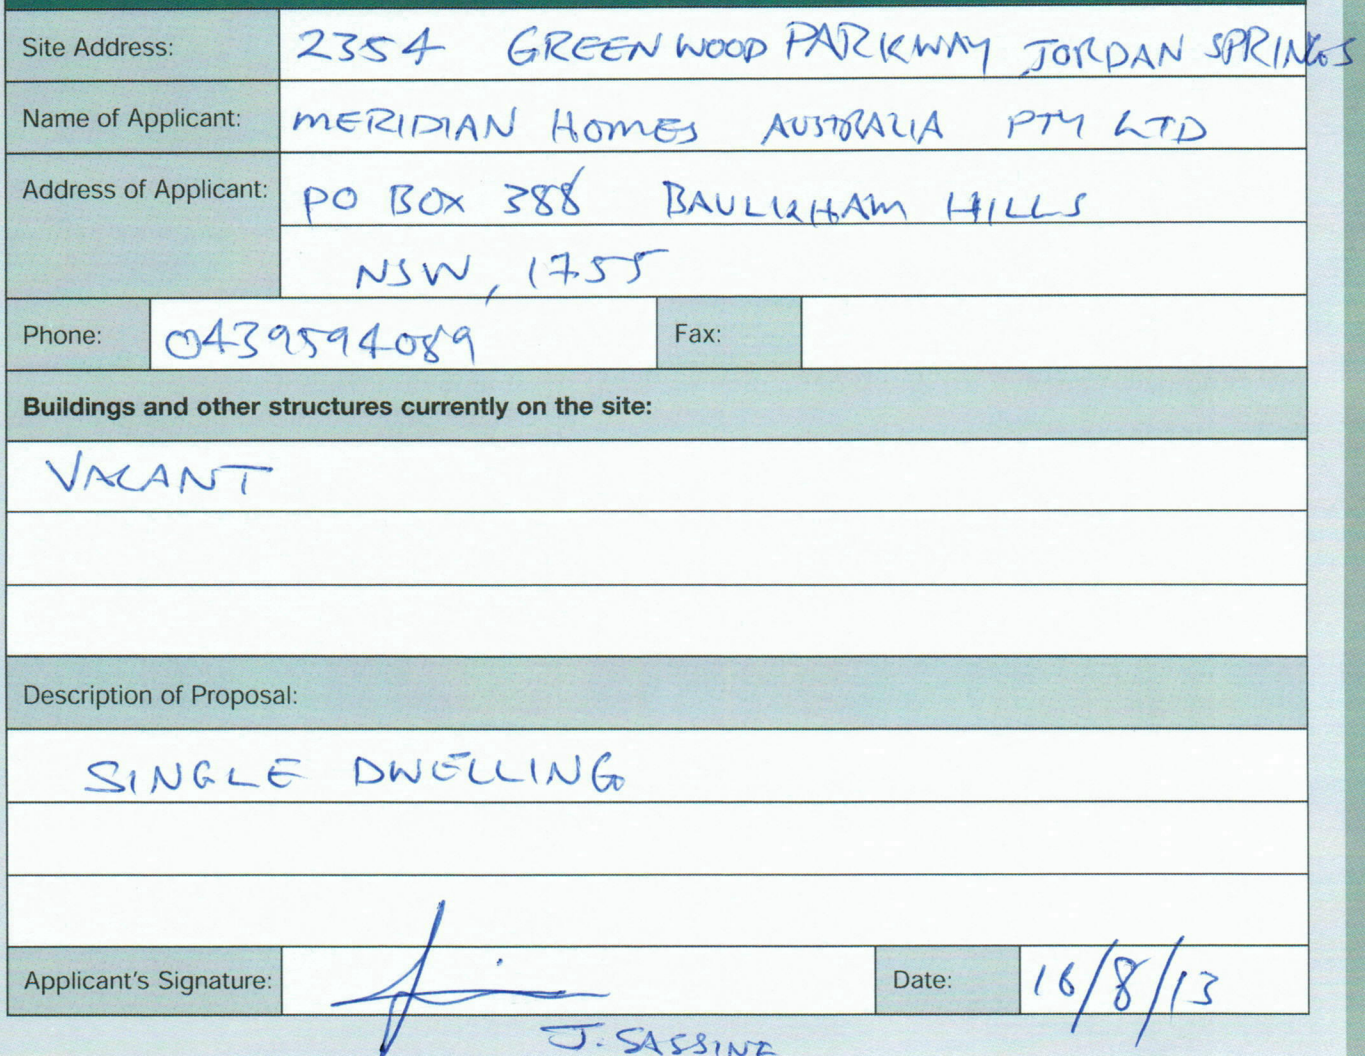 Site Address: 2354 GREENWOOD PARKWAY JORDAN SPRINGS
Name of Applicant: MERIDIAN HOMES AUSTRALIA PTY LTD
Address of Applicant: PO BOX 388 BAULKHAM HILLS
NSW, 1755
Phone: 0439594089 Fax:
Buildings and other structures currently on the site:
VACANT
Description of Proposal:
SINGLE DWELLING
Applicant's Signature: Date: 16/8/13
J. SASSINE